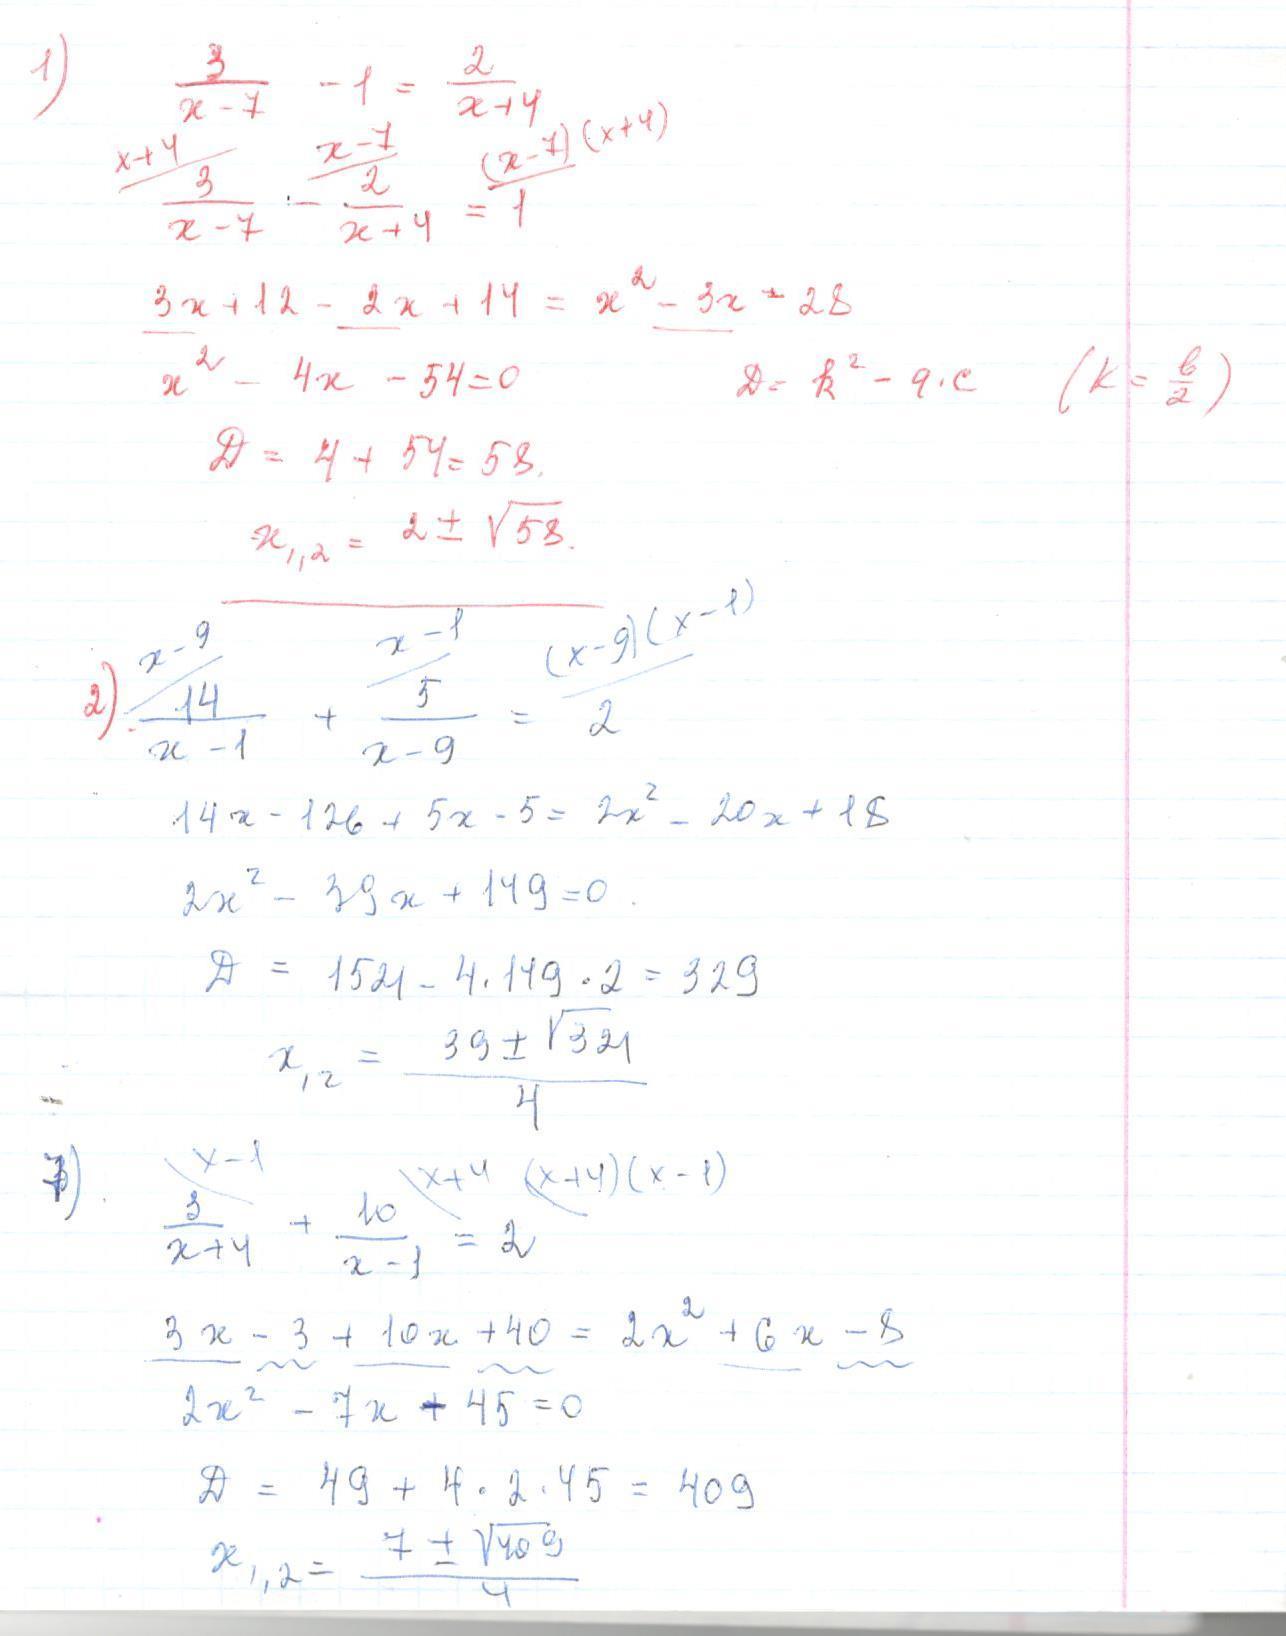 1) 3/(x-7) - 1 = 2/(x+4)
x+4 x-7 (x-7)(x+4)
3/(x-7) - 2/(x+4) = 1
3x+12 - 2x + 14 = x² - 3x - 28
x² - 4x - 54=0 D= k² - a·c (k = b/2)
D = 4 + 54= 58.
x₁,₂ = 2 ± √58.
x-9 x-1 (x-9)(x-1)
2) 14/(x-1) + 5/(x-9) = 2
14x - 126 + 5x - 5 = 2x² - 20x + 18
2x² - 39x + 149=0.
D = 1521 - 4·149·2 = 329
x₁,₂ = (39 ± √321)/4
x-1 x+4 (x+4)(x-1)
3/(x+4) + 10/(x-1) = 2
3x - 3 + 10x + 40 = 2x² + 6x - 8
2x² - 7x - 45 = 0
D = 49 + 4·2·45 = 409
x₁,₂ = (7 ± √409)/4